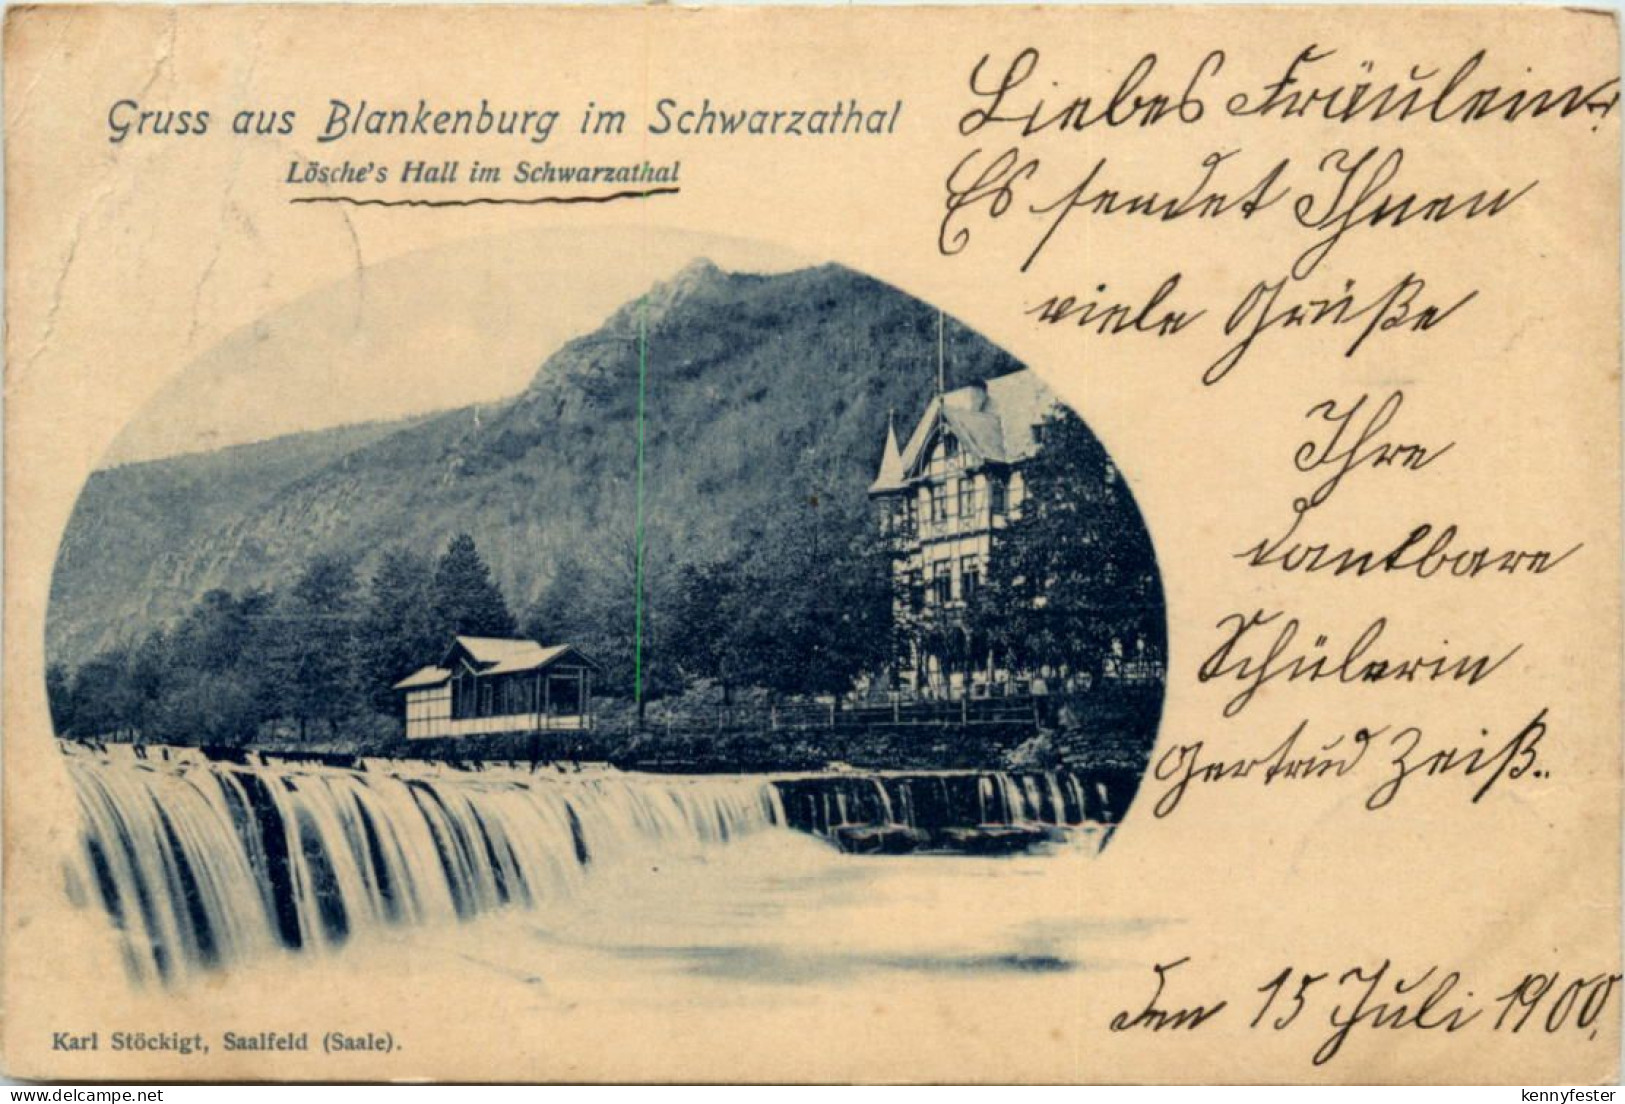 Gruss aus Blankenburg im Schwarzathal
Lösche's Hall im Schwarzathal
Liebes Fräulein!
Es sendet Ihnen
viele Grüße
Ihre
dankbare
Schülerin
Gertrud Zeiß.
den 15 Juli 1900.
Karl Stöckigt, Saalfeld (Saale).
www.delcampe.net
kennyfester